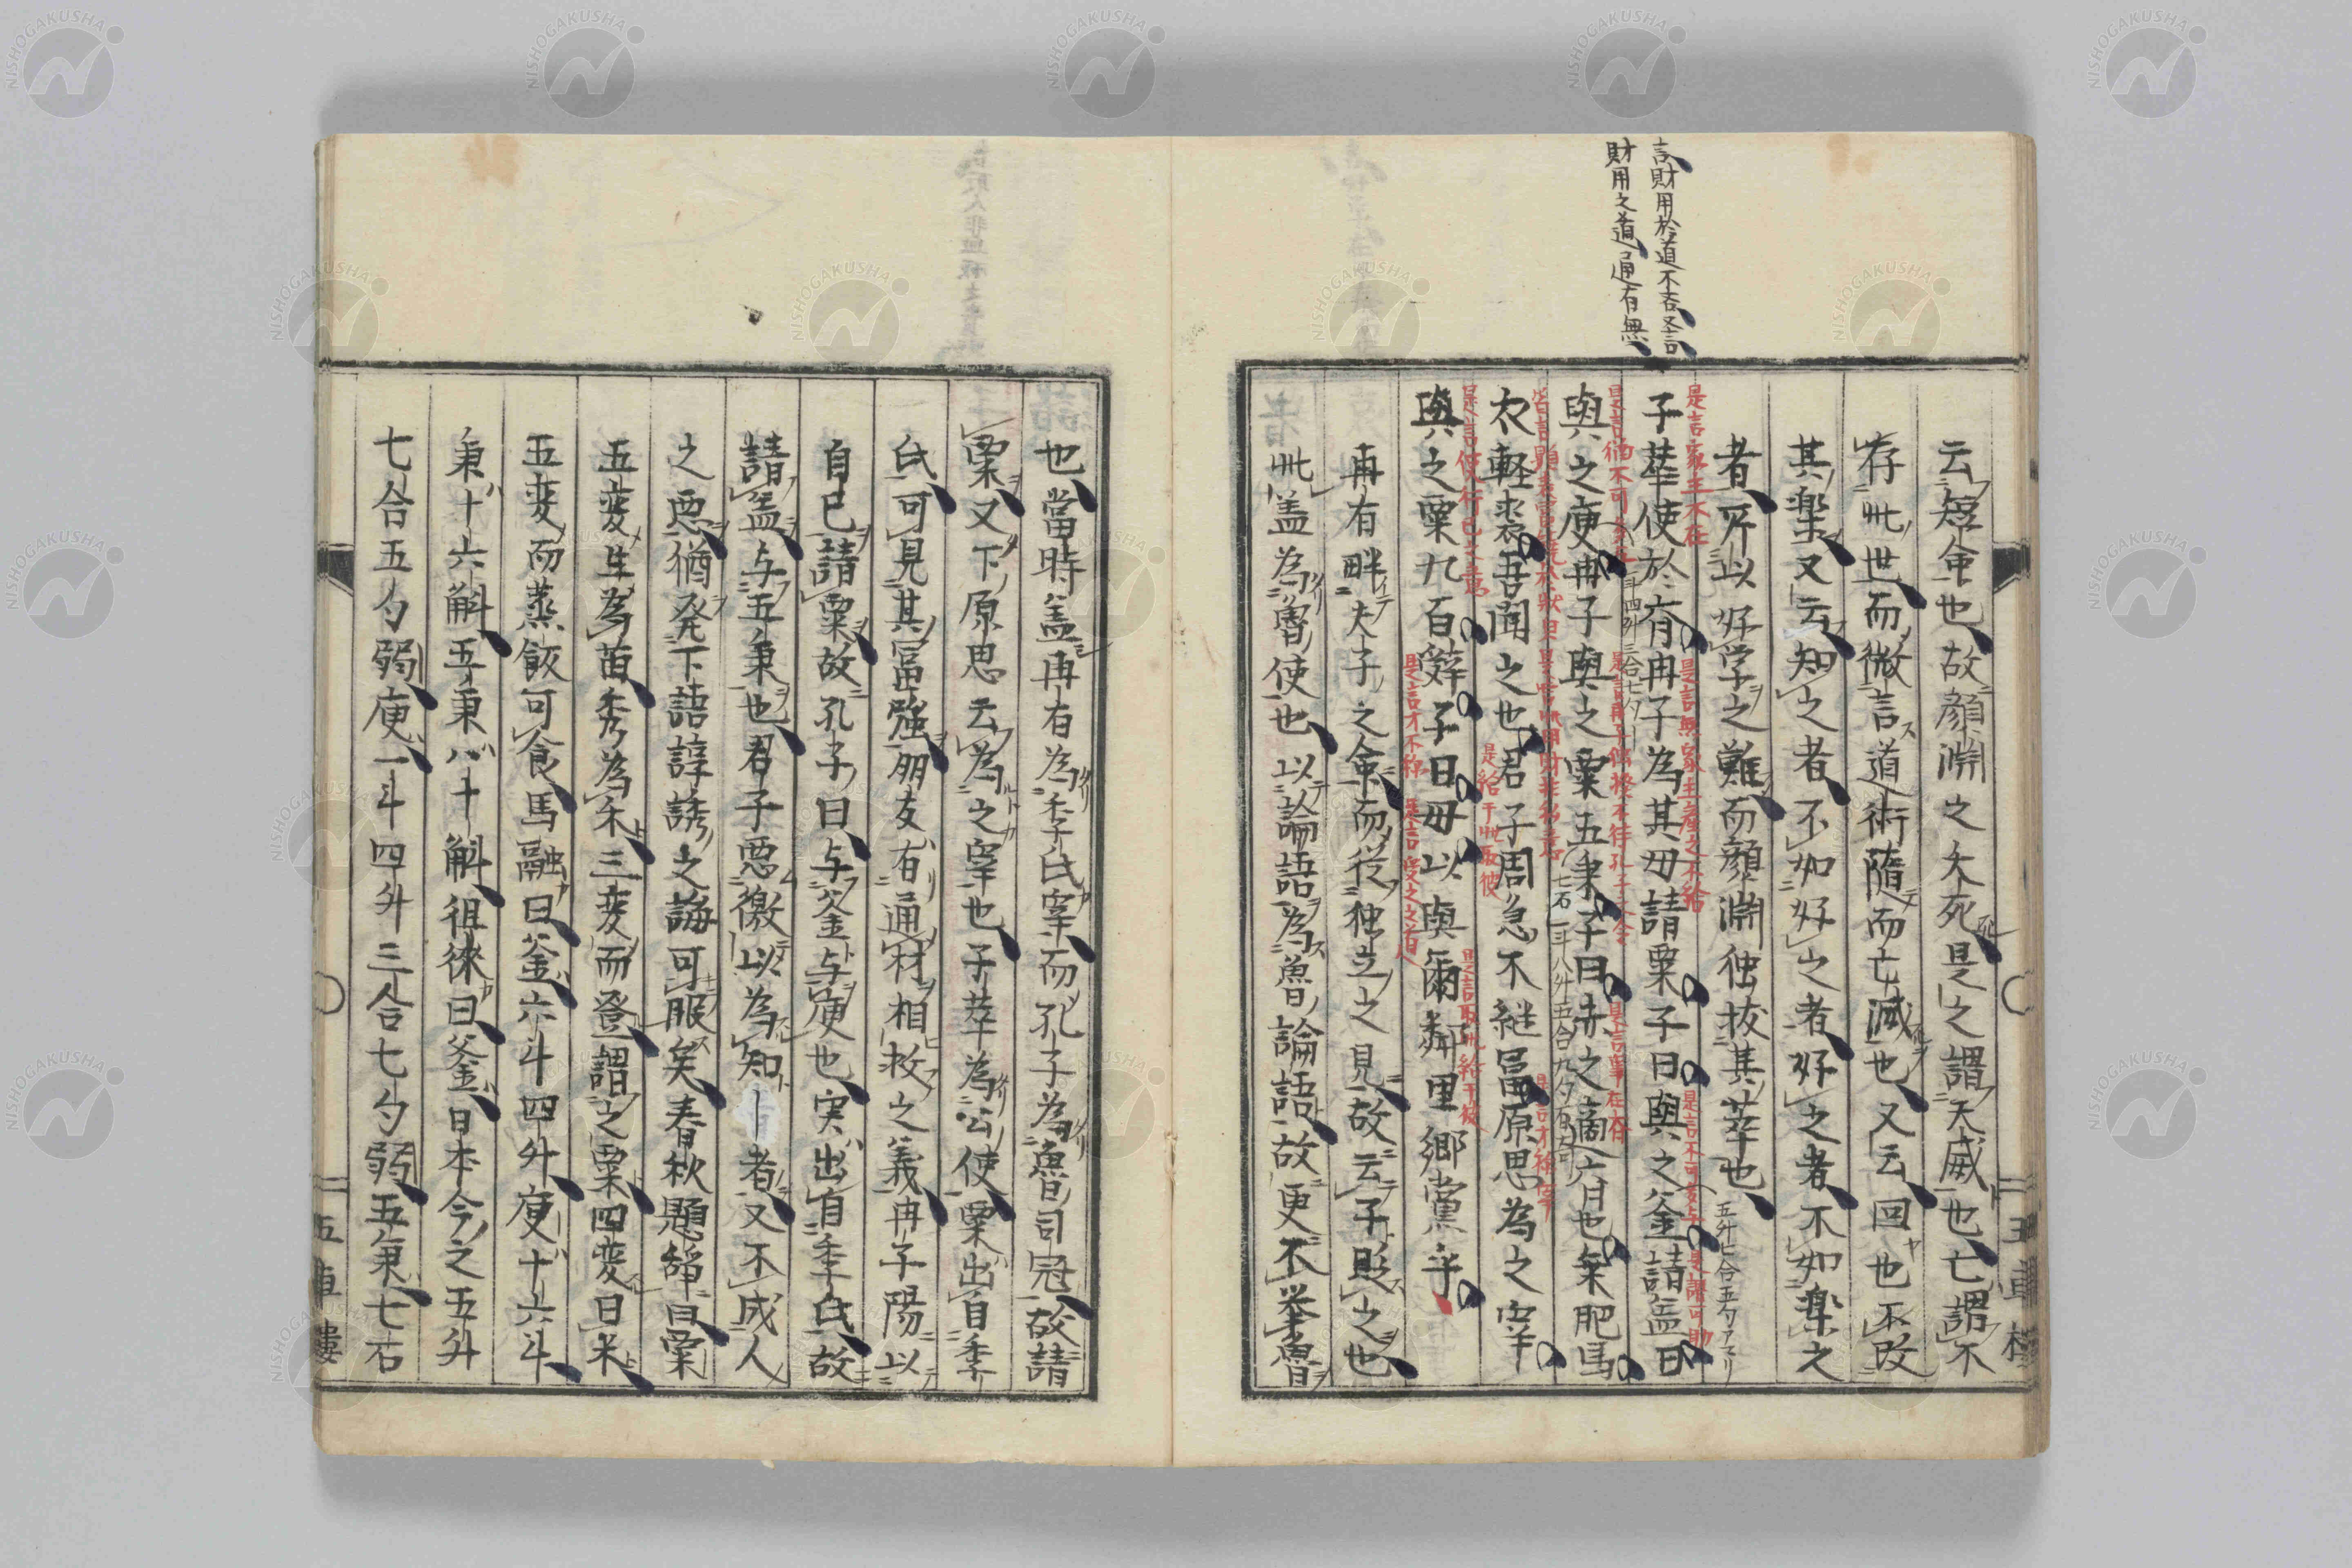 言財用於道不吝吝言
財用之道通有無
云短命也故顔淵之夭死是之謂天威也亡謂不
存此世而微言道術隨而亡滅也又云回也不改
其樂又云知之者不如好之者好之者不如樂之
者所以好学之難而顔淵独抜其萃也
五升七合五勺アマリ
是言家主不在
是言無家主産之不給
是言不可多与
是謂可助
子華使於斉冉子為其母請粟子曰與之釜請益曰
一斗四升三合七勺
是言事在斉
與之庾冉子與之粟五秉子曰赤之適斉也乗肥馬
七石一斗八升五合九勺有奇
衣軽裘吾聞之也君子周急不継冨原思為之宰
是給于此取彼
是言使行己之意
是言取此給于彼
與之粟九百辤子曰毋以與爾鄰里郷黨乎
是言才不称
是言受之之道
冉有畔夫子之命而從独立之見故云子貶之也
此蓋為魯使也以論語為魯論語故更不挙魯
也當時蓋冉有為季氏宰而孔子為魯司冠故請
粟又下原思云為之宰也子華為公使粟出自季
氏可見其冨強朋友有通材相救之義冉子陽以
自已請粟故孔子曰与釜与庾也実出自季氏故
請益与五秉也君子悪徼以為知者又不成人
之悪猶発下語諄誘之誨可服矣春秋題辞曰粟
五変生為苗秀為禾三変而登謂之粟四変曰米
五変而蒸飯可食馬融曰釜六斗四升庾十六斗
秉十六斛五秉八十斛徂徠曰釜日本今之五升
七合五勺弱庾一斗四升三合七勺弱五秉七石
五車樓